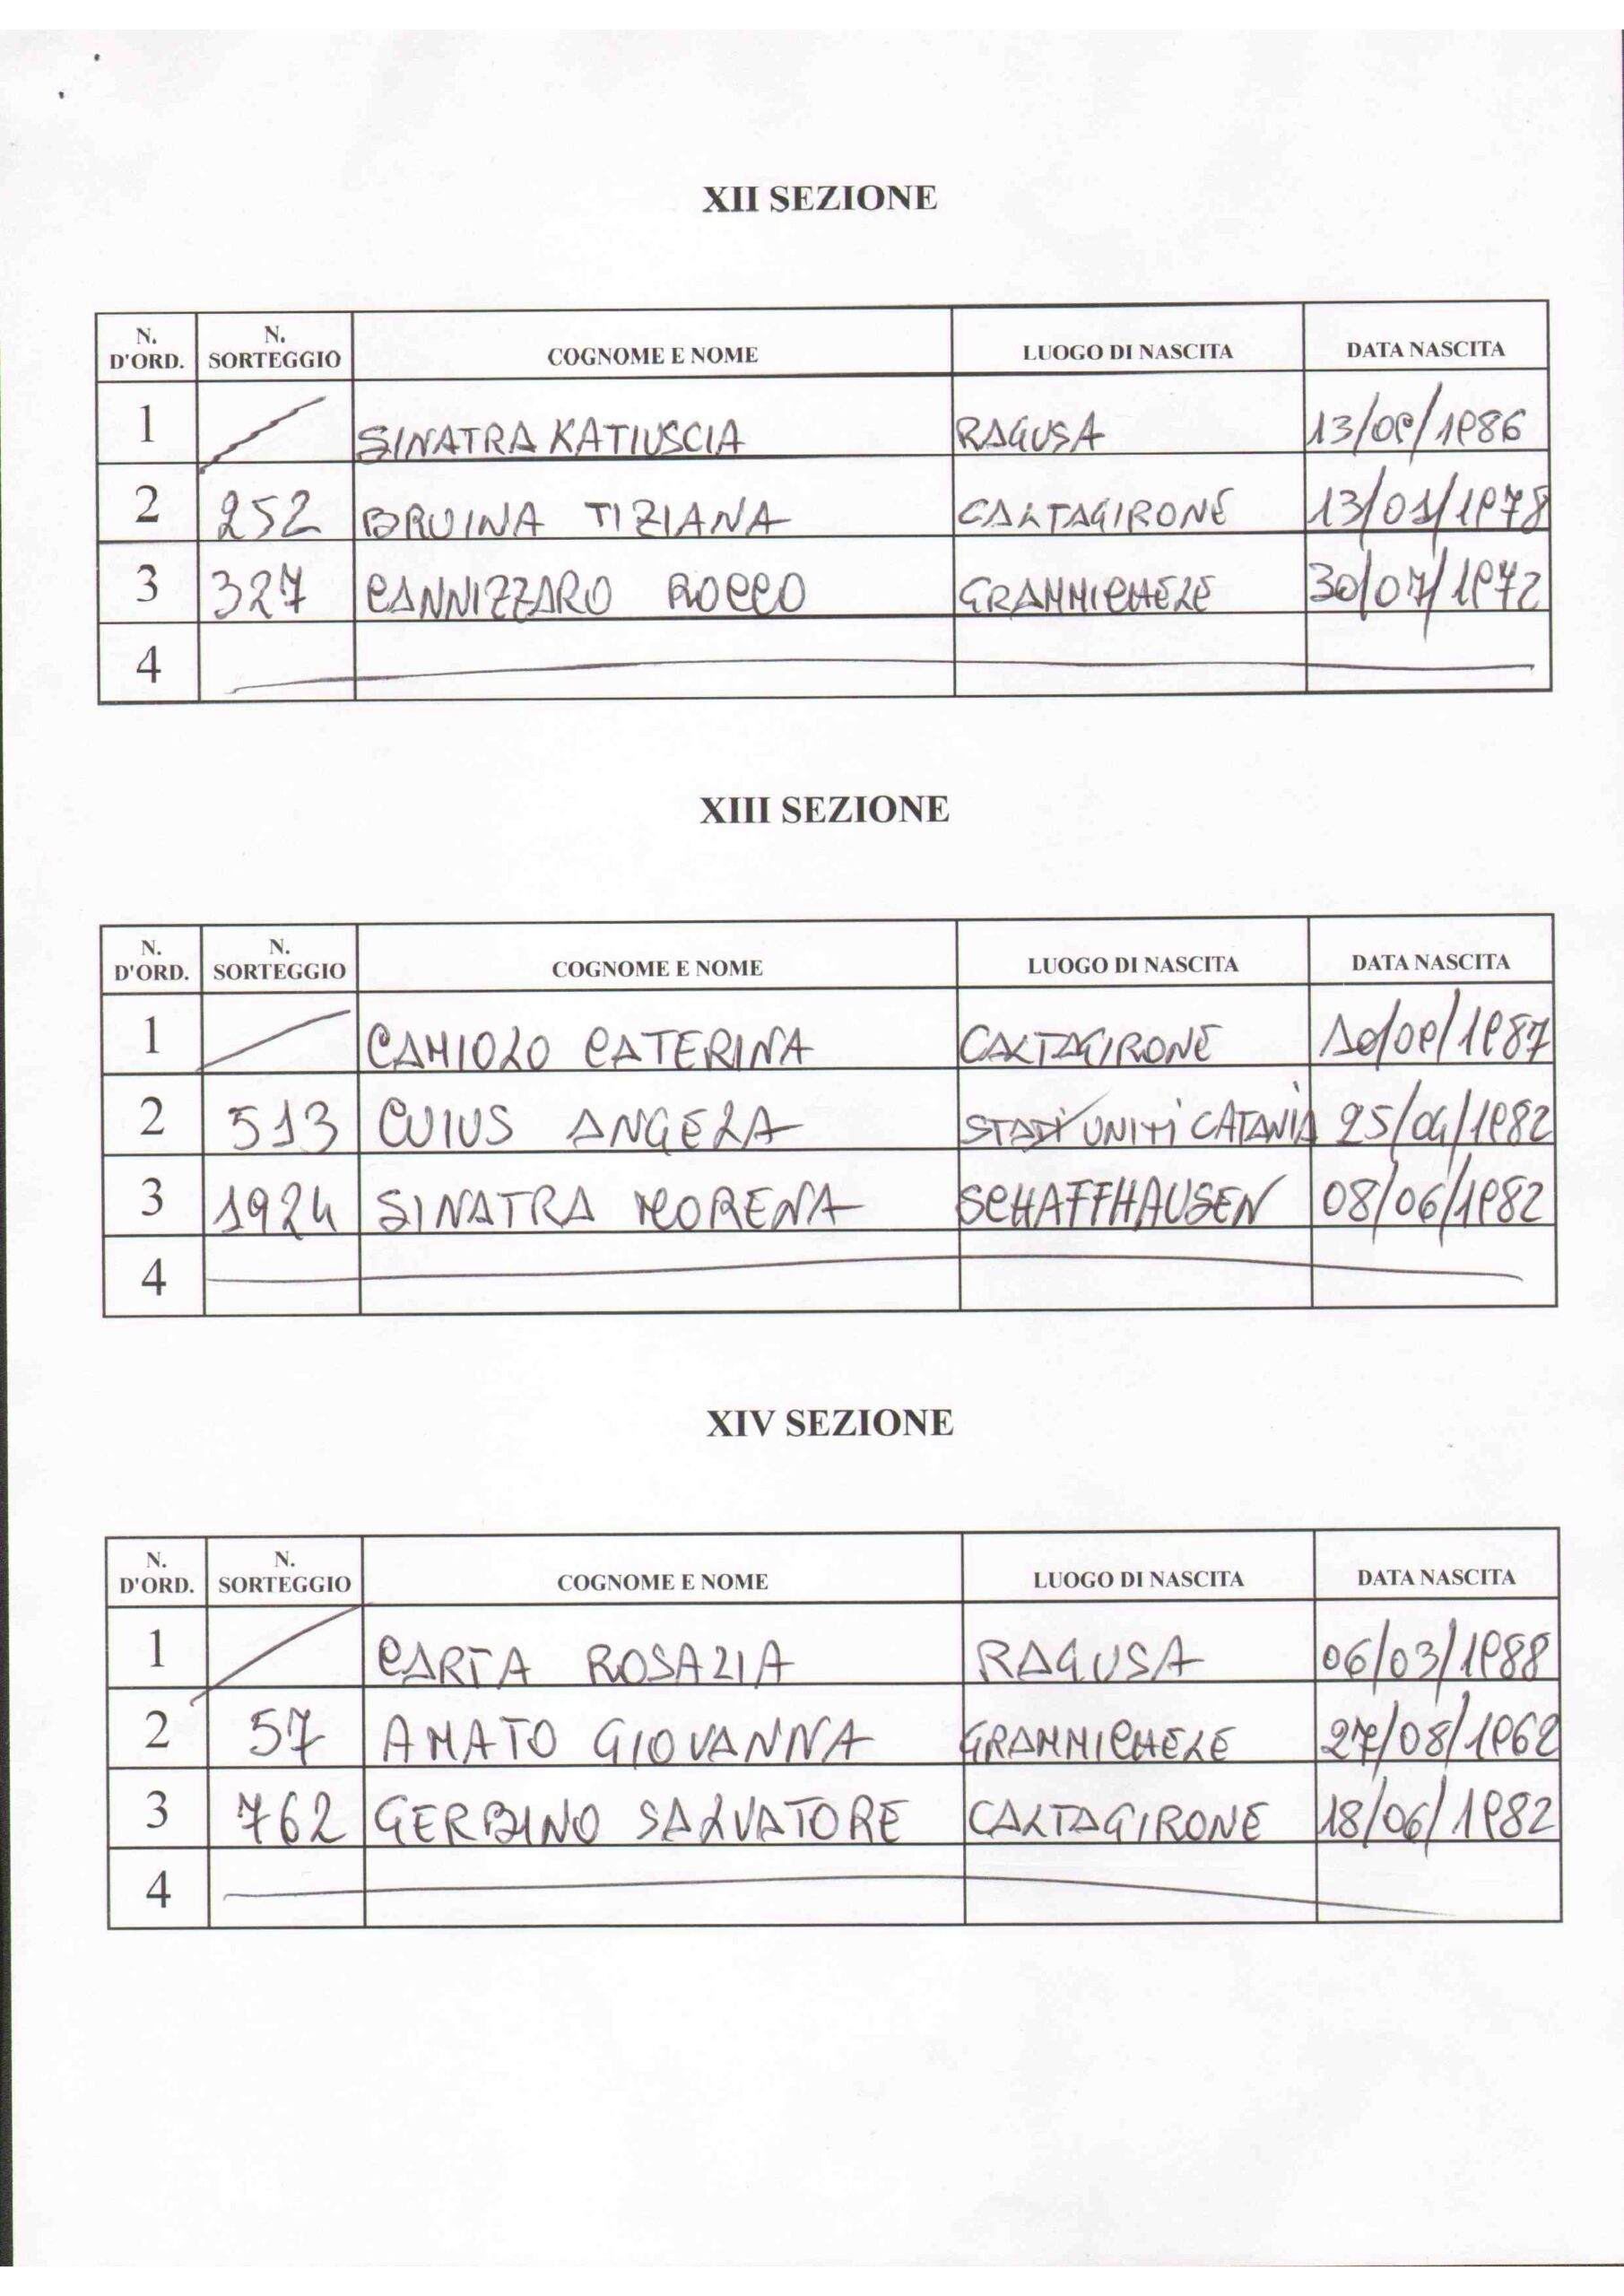 XII SEZIONE
N. D'ORD. N. SORTEGGIO COGNOME E NOME LUOGO DI NASCITA DATA NASCITA
1 SINATRA KATIUSCIA RAGUSA 13/09/1986
2 252 BRUINA TIZIANA CALTAGIRONE 13/01/1978
3 327 CANNIZZARO ROCCO GRAMMICHELE 30/07/1972
4
XIII SEZIONE
N. D'ORD. N. SORTEGGIO COGNOME E NOME LUOGO DI NASCITA DATA NASCITA
1 CAMIOLO CATERINA CALTAGIRONE 10/09/1987
2 513 CUIUS ANGELA UNITI CATANIA 25/04/1982
3 1924 SINATRA MORENA SCHAFFHAUSEN 08/06/1982
4
XIV SEZIONE
N. D'ORD. N. SORTEGGIO COGNOME E NOME LUOGO DI NASCITA DATA NASCITA
1 CARTA ROSALIA RAGUSA 06/03/1988
2 57 AMATO GIOVANNA GRAMMICHELE 27/08/1962
3 762 GERBINO SALVATORE CALTAGIRONE 18/06/1982
4